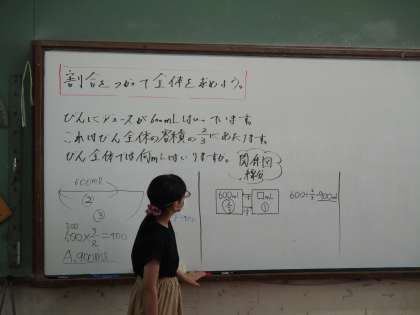 割合をつかって全体を求めよう。
びんにジュースが600mLはいっています。
これはびん全体の容積の2/3にあたります。
びん全体では何mLはいりますか。
関係図
600mL
②
③
600×3/2=900
A.900mL
600mL
□mL
600÷2/3=900mL